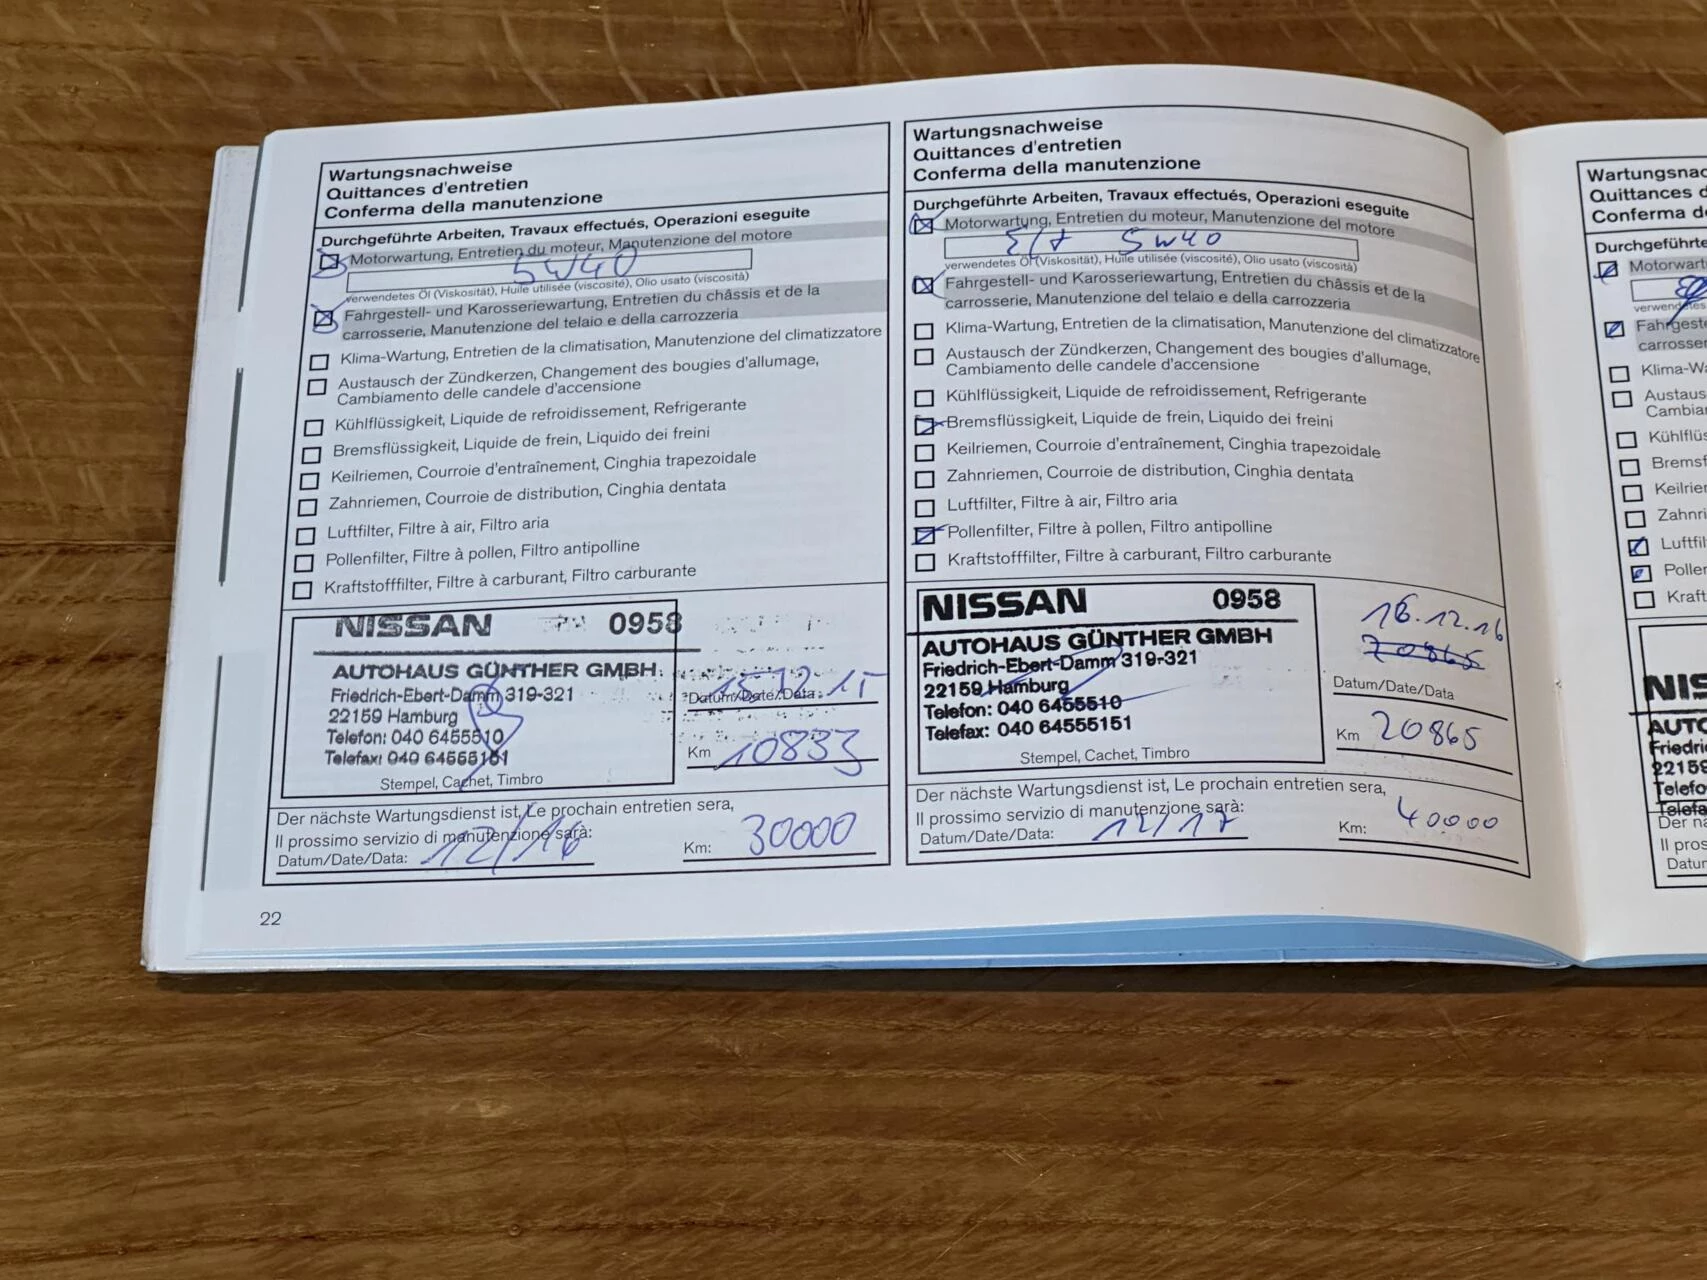 Wartungsnachweise
Quittances d'entretien
Conferma della manutenzione
Durchgeführte Arbeiten, Travaux effectués, Operazioni eseguite
Motorwartung, Entretien du moteur, Manutenzione del motore
5W40
verwendetes Öl (Viskosität), Huile utilisée (viscosité), Olio usato (viscosità)
Fahrgestell- und Karosseriewartung, Entretien du châssis et de la
carrosserie, Manutenzione del telaio e della carrozzeria
Klima-Wartung, Entretien de la climatisation, Manutenzione del climatizzatore
Austausch der Zündkerzen, Changement des bougies d'allumage,
Cambiamento delle candele d'accensione
Kühlflüssigkeit, Liquide de refroidissement, Refrigerante
Bremsflüssigkeit, Liquide de frein, Liquido dei freini
Keilriemen, Courroie d'entraînement, Cinghia trapezoidale
Zahnriemen, Courroie de distribution, Cinghia dentata
Luftfilter, Filtre à air, Filtro aria
Pollenfilter, Filtre à pollen, Filtro antipolline
Kraftstofffilter, Filtre à carburant, Filtro carburante
NISSAN 0958
AUTOHAUS GÜNTHER GMBH
Friedrich-Ebert-Damm 319-321
22159 Hamburg
Telefon: 040 6455510
Telefax: 040 64555151
Stempel, Cachet, Timbro
Datum/Date/Data:
Km 10833
Der nächste Wartungsdienst ist, Le prochain entretien sera,
Il prossimo servizio di manutenzione sarà:
Datum/Date/Data: 12/16 Km: 30000
22
Wartungsnachweise
Quittances d'entretien
Conferma della manutenzione
Durchgeführte Arbeiten, Travaux effectués, Operazioni eseguite
Motorwartung, Entretien du moteur, Manutenzione del motore
5W40
verwendetes Öl (Viskosität), Huile utilisée (viscosité), Olio usato (viscosità)
Fahrgestell- und Karosseriewartung, Entretien du châssis et de la
carrosserie, Manutenzione del telaio e della carrozzeria
Klima-Wartung, Entretien de la climatisation, Manutenzione del climatizzatore
Austausch der Zündkerzen, Changement des bougies d'allumage,
Cambiamento delle candele d'accensione
Kühlflüssigkeit, Liquide de refroidissement, Refrigerante
Bremsflüssigkeit, Liquide de frein, Liquido dei freini
Keilriemen, Courroie d'entraînement, Cinghia trapezoidale
Zahnriemen, Courroie de distribution, Cinghia dentata
Luftfilter, Filtre à air, Filtro aria
Pollenfilter, Filtre à pollen, Filtro antipolline
Kraftstofffilter, Filtre à carburant, Filtro carburante
NISSAN 0958
AUTOHAUS GÜNTHER GMBH
Friedrich-Ebert-Damm 319-321
22159 Hamburg
Telefon: 040 6455510
Telefax: 040 64555151
Stempel, Cachet, Timbro
16.12.16
20865
Datum/Date/Data
Km 20865
Der nächste Wartungsdienst ist, Le prochain entretien sera,
Il prossimo servizio di manutenzione sarà:
Datum/Date/Data: 12/17 Km: 40000
Wartungsnac
Quittances d
Conferma d
Durchgeführte
Motorwart
verwendetes
Fahrgeste
carrosser
Klima-Wa
Austaus
Cambia
Kühlflüs
Bremsf
Keilrie
Zahnri
Luftfil
Pollen
Kraft
NIS
AUTO
Friedri
22159
Telefo
Telefa
Der nä
Il pros
Datur